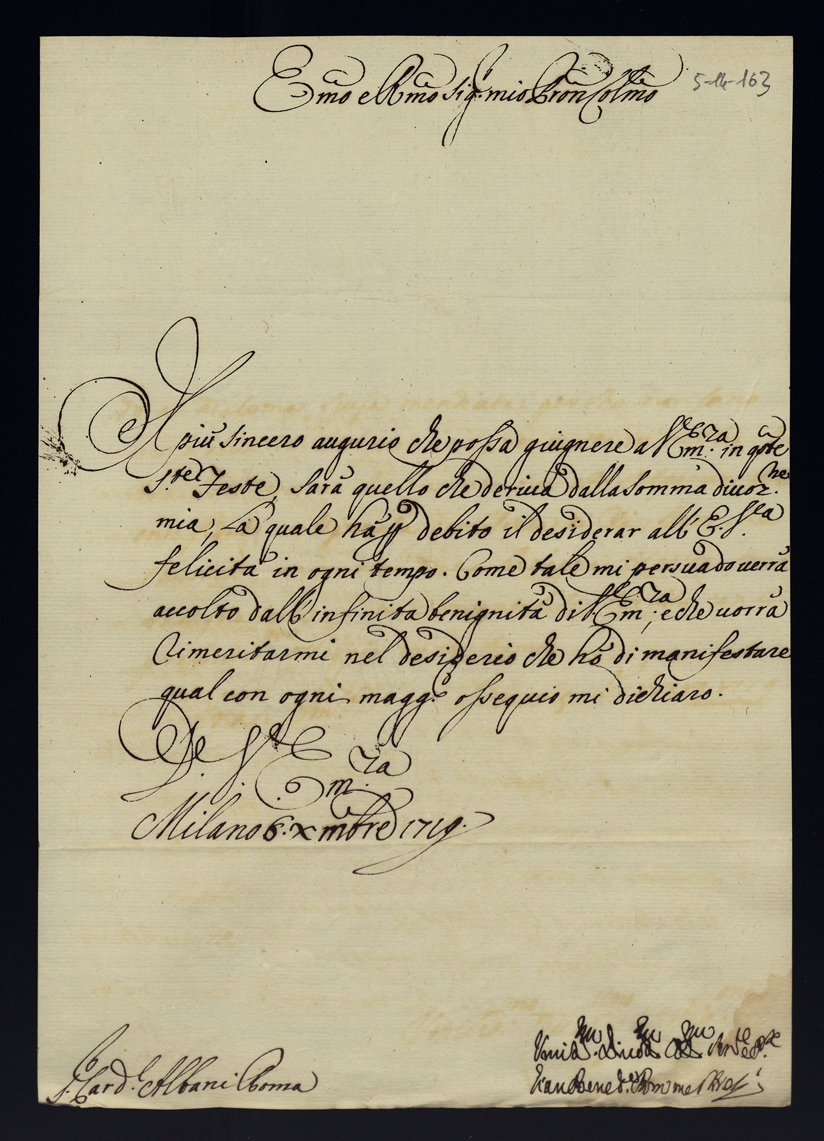 Em̃o e Rm̃o Sig.r mio Pron Colm̃o
5-14-163
Il più sincero augurio che possa giugnere a V. Em.za in q̃ste
S.te Feste, sarà quello che deriva dalla somma divoz.ne
mia, La quale hà p debito il desiderar all' E. V.ra
felicità in ogni tempo. Come tale mi persuado verrà
accolto dall' infinita benignità di V. Em.za; e che vorrà
rimeritarmi nel desiderio che hò di manifestare
qual con ogni magg.e ossequio mi dichiaro.
Di V. Em.za
Milano 6. Xmbre 1719.
S.r Card.l Albani Roma
Gian Bened.o